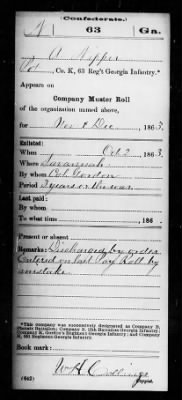 (Confederate.)
63 Ga.
A Nipper
Pvt, Co. K, 63 Reg't Georgia Infantry.*
Appears on
Company Muster Roll
of the organization named above,
for Nov & Dec, 1863.
Enlisted:
When Oct 2, 1863.
Where Savannah
By whom Col. Gordon
Period 3 years or the war
Last paid:
By whom
To what time , 186 .
Present or absent
Remarks: Discharged by order
Entered on last Pay Roll by
mistake
*This company was successively designated as Company D,
Phoenix Battalion; Company D, 13th Battalion Georgia Infantry;
Company K, Gordon's Regiment Georgia Infantry; and Company
K, 63d Regiment Georgia Infantry.
Book mark:
(642) Copyist.